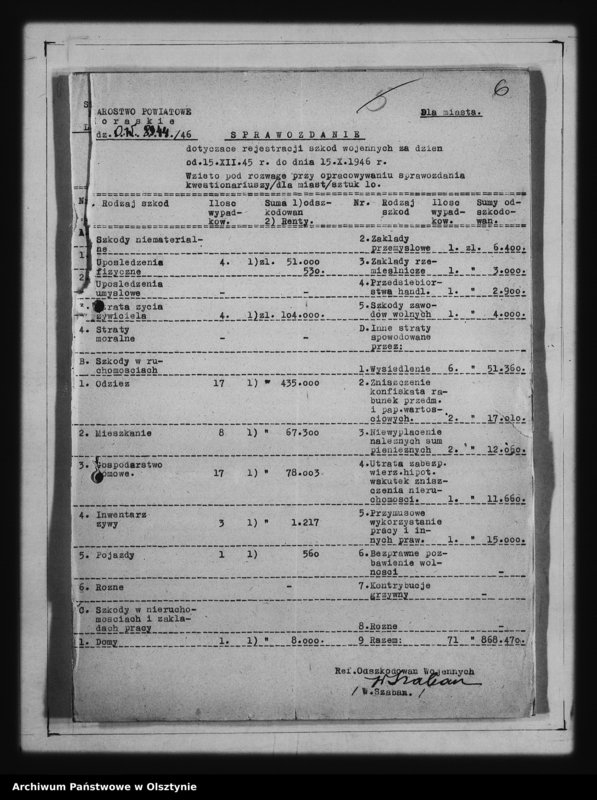 6
AROSTWO POWIATOWE
Dla miasta.
orąskie
dz. /46
SPRAWOZDANIE
dotyczące rejestracji szkod wojennych za dzien
od.15.XII.45 r. do dnia 15.X.1946 r.
Wzieto pod rozwage przy opracowywaniu sprawozdania
kwestionariuszy/dla miast/sztuk 10.
Rodzaj szkod Ilosc wypad- kow. Suma 1)odsz- kodowan 2) Renty. Nr. Rodzaj szkod Ilosc wypad- kow. Sumy od- szkodo- wan.
A
Szkody niematerial-
ne
1. Uposledzenia
fizyczne 4. 1)zl. 51.000
530.
2. Uposledzenia
umyslowe - -
trata zycia
zywiciela 4. 1)zl. 104.000.
4. Straty
moralne - -
B. Szkody w ru-
chomosciach
1. Odziez 17 1) " 435.000
2. Mieszkanie 8 1) " 67.300
3. Gospodarstwo
domowe. 17 1) " 78.003
4. Inwentarz
zywy 3 1) " 1.217
5. Pojazdy 1 1) 560
6. Rozne -
C. Szkody w nierucho-
mosciach i zakla-
dach pracy
1. Domy 1. 1) " 8.000.
2. Zaklady
przemyslowe 1. zl. 6.400.
3. Zaklady rze-
mieslnicze 1. " 3.000.
4. Przedsiebior-
stwa handl. 1. " 2.900.
5. Szkody zawo-
dow wolnych 1. " 4.000.
D. Inne straty
spowodowane
przez:
1. Wysiedlenie 6. " 51.360.
2. Zniszczenie
konfiskata ra-
bunek przedm.
i pap.wartos-
ciowych. 2. " 17.010.
3. Niewyplacenie
naleznych sum
pienieznych 2. " 12.060.
4. Utrata zabezp.
wierz.hipot.
wskutek znisz-
czenia nieru-
chomosci. 1. " 11.660.
5. Przymusowe
wykorzystanie
pracy i in-
nych praw. 1. " 15.000.
6. Bezprawne poz-
bawienie wol-
nosci -
7. Kontrybucje
grzywny -
8. Rozne -
9 Razem: 71 " 868.470.
Ref.Odszkodowan Wojennych
W Szaban
/ W.Szaban. /
Archiwum Państwowe w Olsztynie